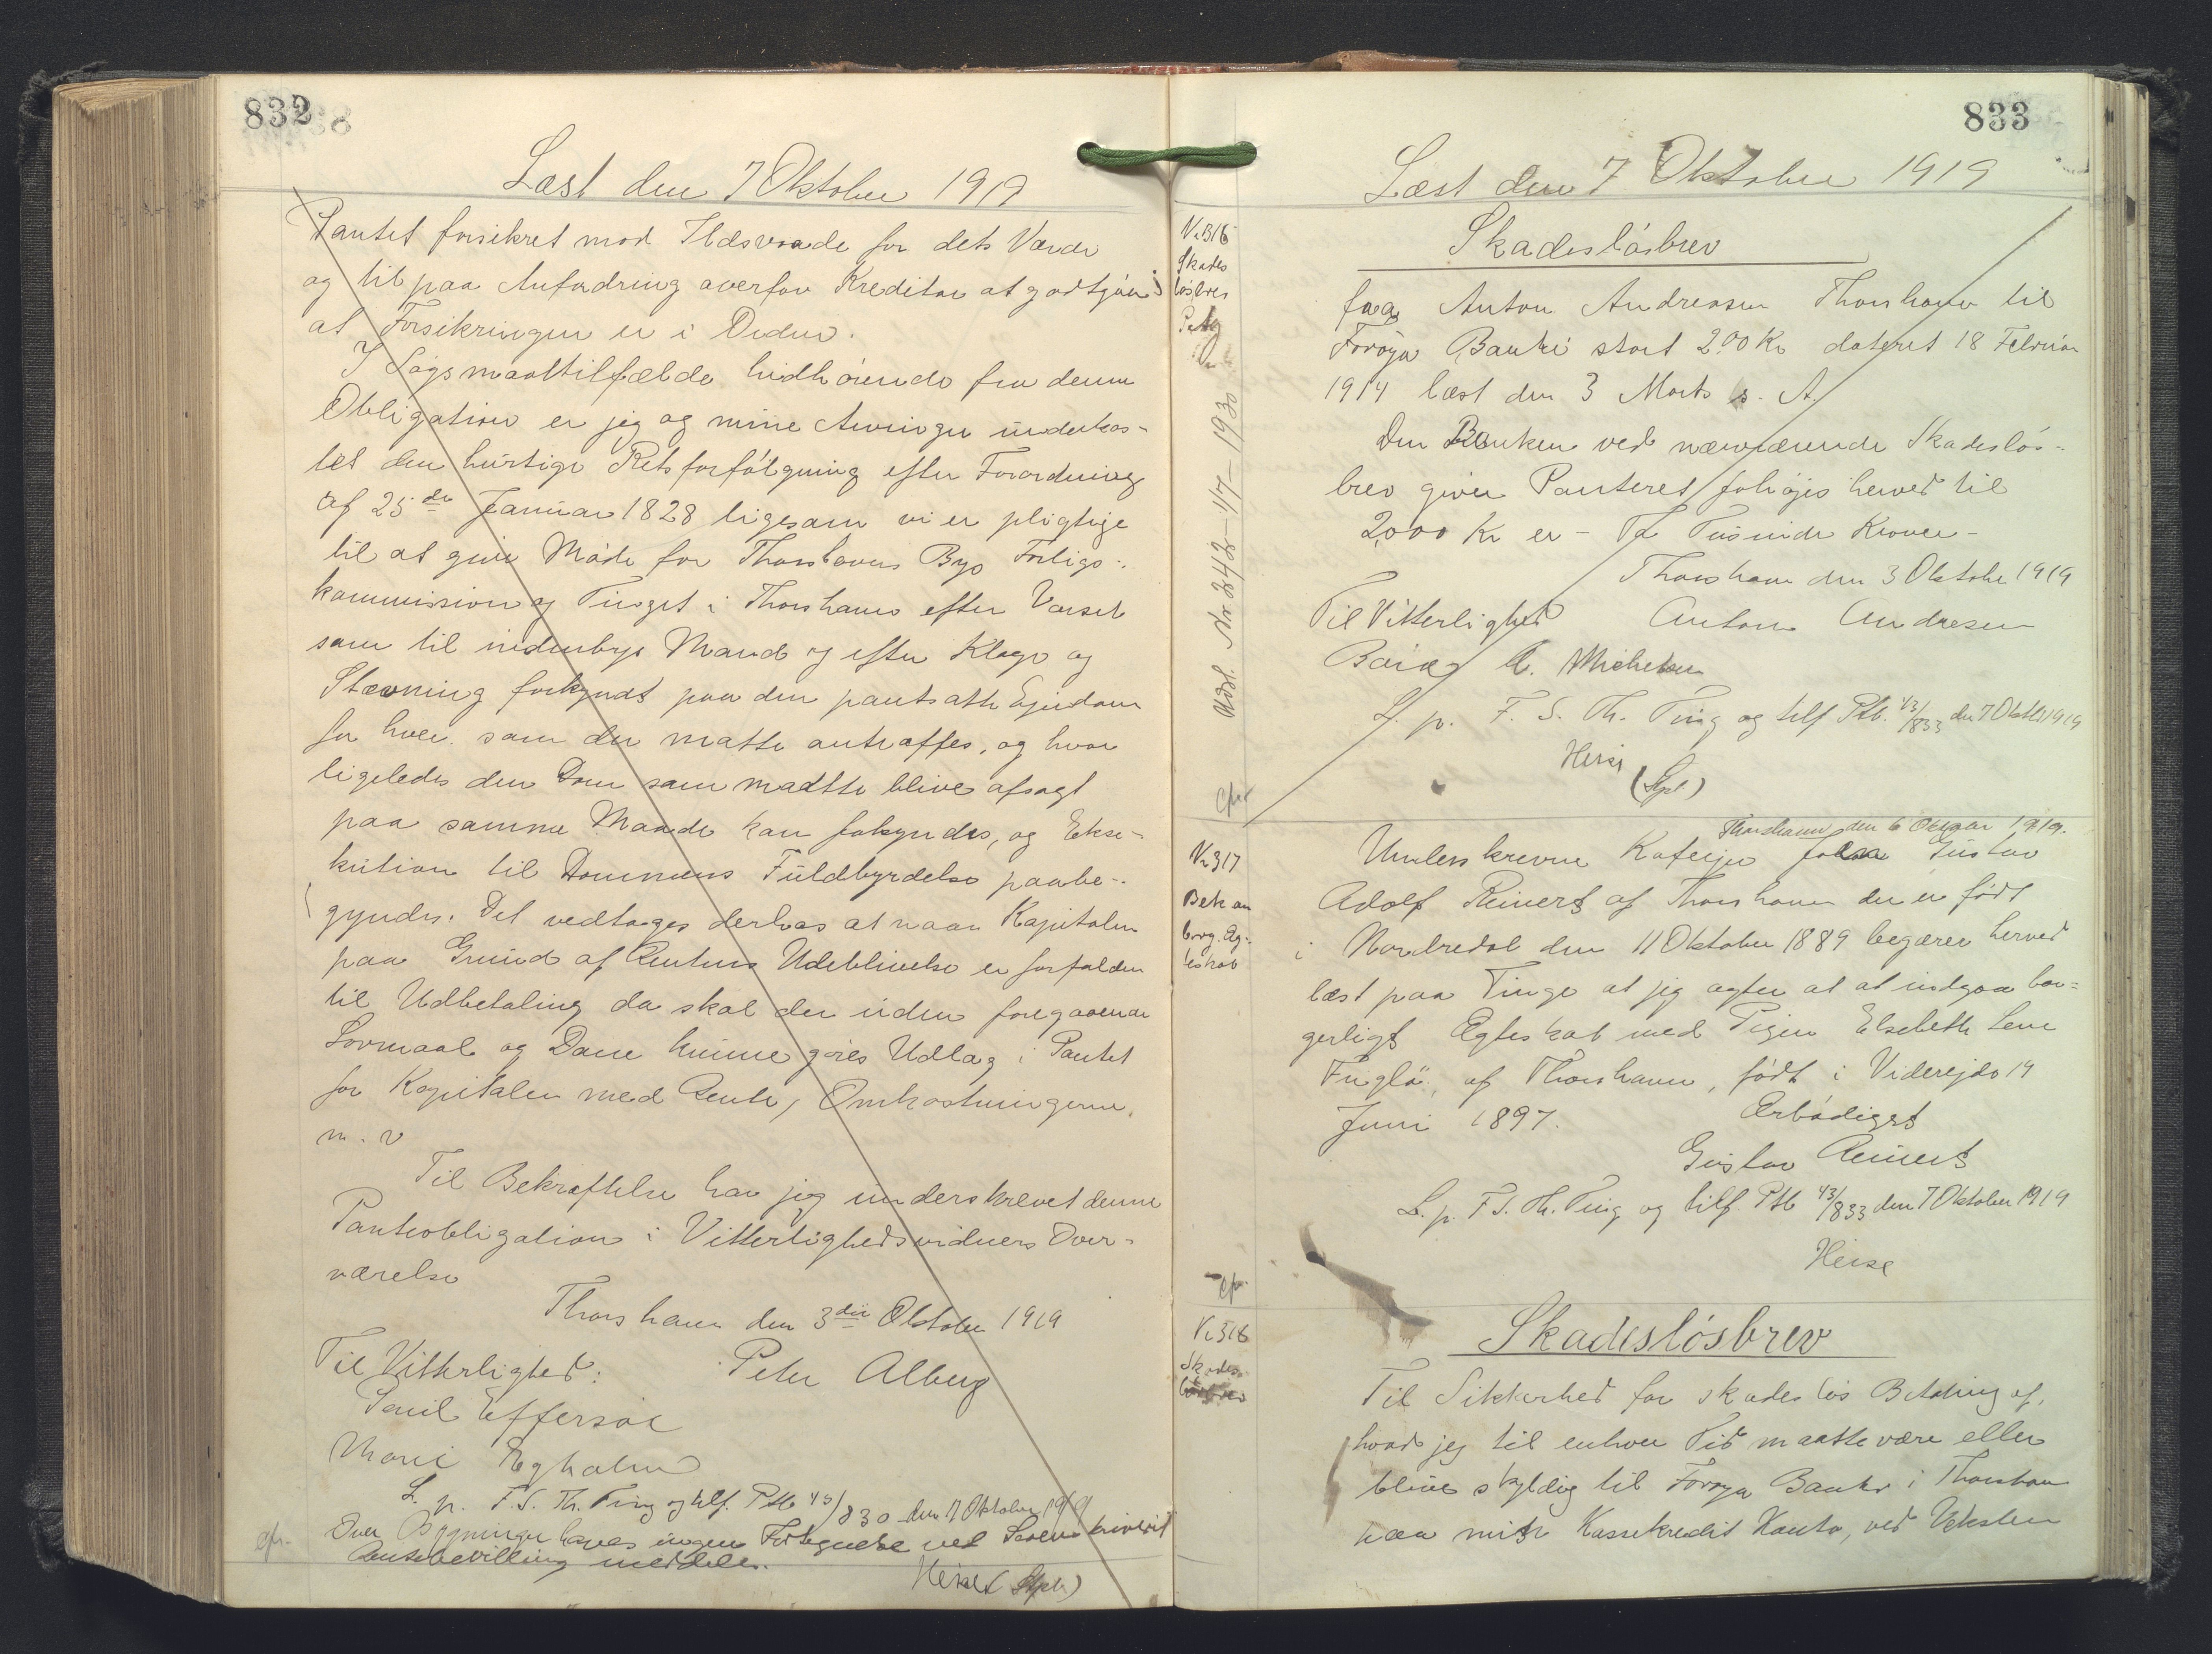 832
Læst den 7 Oktober 1919
Pantet forsikret mod Ildsvaade for dets Værdi
og til paa Anfordring overfor Kreditor at godtgöre
at Forsikringen er i Orden.
I Sögsmaaltilfælde hidhörende fra denne
Obligation er jeg og mine Arvinger underkas-
tet den hurtige Retsforfölgning efter Forordning
af 25de Januar 1828 ligesom vi er pligtige
til at give Möde for Thorshavns Bys Forligs-
kommission og Tinget i Thorshavn efter Varsel
som til indenbys Mand og efter Klage og
Stævning forkyndt paa den pantsatte Ejendom
for hver som der matte antræffes, og hvor
ligeledes den Dom som maatte blive afsagt
paa samme Maade kan forkyndes, og Ekse-
kution til Dommens Fuldbyrdelse paabe-
gyndes. Det vedtages derhos at naar Kapitalen
paa Grund af Rentens Udeblivelse er forfalden
til Udbetaling da skal der uden foregaaende
Lovmaal og Dom kunne göres Udlæg i Pantet
for Kapitalen med Rente, Omkostningerne
m. v
Til Bekræftelse har jeg underskrevet denne
Panteobligation i Vitterlighedsvidners Over-
værelse
Thorshavn den 3die Oktober 1919
Til Vitterlighed: Peter Alberg
Poul Effersöe
Marie Egholm
L. p. F. S. Th. Ting og tilf. Ptb 43/830 den 7 Oktober 1919
Over Bygninger haves ingen Fortegnelse ved Sorenskriveriet
Amtsbevilling meddeles.
cfr.
Heise (Gpl.)
833
Læst den 7 Oktober 1919
Nr 316
Skades
lösbrev
Skadeslösbrev
fra Anton Andreasen Thorshavn til
Foroya Banki stort 200 Kr dateret 18 Februar
1914 læst den 3 Marts s. A.
Den Banken ved nærværende Skadeslös-
brev given Panteret forhöjes herved til
2000 Kr er - To Tusinde Kroner -
Thorshavn den 3 Oktober 1919
Til Vitterlighed Anton Andresen
A. Michelsen
L. p. F. S. Th. Ting og tilf Ptb. 43/833 den 7 Oktbr 1919
Heise
(Gpl)
Udsl. Nr. 242-47-1930
cfr
Nr 317
Bek om
borg. Æg-
teskab
Thorshavn den 6 Oktober 1919.
Underskrevne Gustav
Adolf Reinert af Thorshavn der er födt
i Nordredal den 11 Oktober 1889 begærer herved
læst paa Tinge at jeg agter at at indgaa bor-
gerligt Ægteskab med Pigen Elsebeth Lene
Fuglö, af Thorshavn, födt i Viderejde 14
Juni 1897. Ærbödigst
Gustav Reinert
L. p. F. S. Th. Ting og tilf. Ptb 43/833 den 7 Oktober 1919
Heise
cfr.
Nr 318
Skades-
lösbrev
Skadeslösbrev
Til Sikkerhed for skadeslös Betaling af,
hvad jeg til enhver Tid maatte være eller
blive skyldig til Foroya Banki i Thorshavn
paa mit Kassekredit Konto, ved Veksler